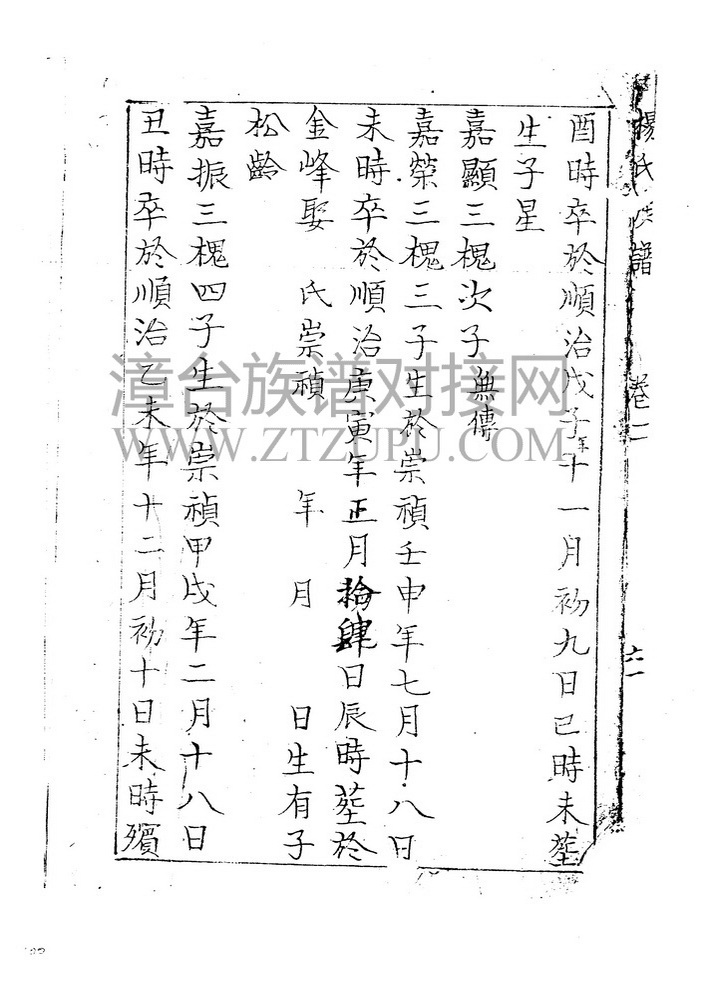 楊氏族譜 卷二 六一
酉時卒於順治戊子年十一月初九日巳時未塟
生子星
嘉顯三槐次子無傳
嘉榮三槐三子生於崇禎壬申年七月十八日
未時卒於順治庚寅年正月拾肆日辰時塟於
金峰娶 氏崇禎 年 月 日生有子
松齡
嘉振三槐四子生於崇禎甲戌年二月十八日
丑時卒於順治乙未年十二月初十日未時殯
漳台族谱对接网
WWW.ZTZUPU.COM